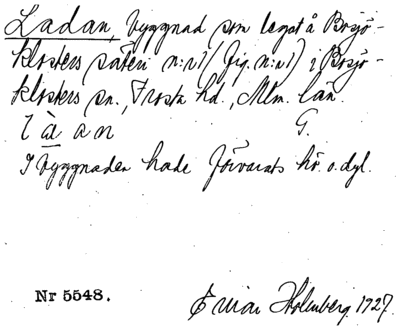 Ladan, byggnad som legat å Bosjö-
klosters säteri n:r 1 (fig. n:r 1) i Bosjö-
klosters sn., Frosta hd., Mlm. län.
l à a n G.
I byggnaden hade förvarats hö o.dyl.
Nr 5548. Holmberg 1927.